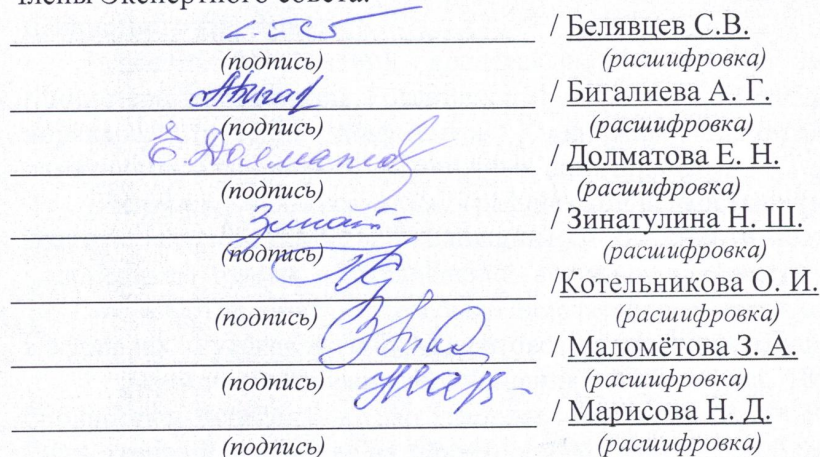 Члены Экспертного совета:
/ Белявцев С.В.
(подпись) (расшифровка)
/ Бигалиева А. Г.
(подпись) (расшифровка)
Е. Долматов / Долматова Е. Н.
(подпись) (расшифровка)
Зинат / Зинатулина Н. Ш.
(подпись) (расшифровка)
/Котельникова О. И.
(подпись) (расшифровка)
/ Маломётова З. А.
(подпись) (расшифровка)
/ Марисова Н. Д.
(подпись) (расшифровка)